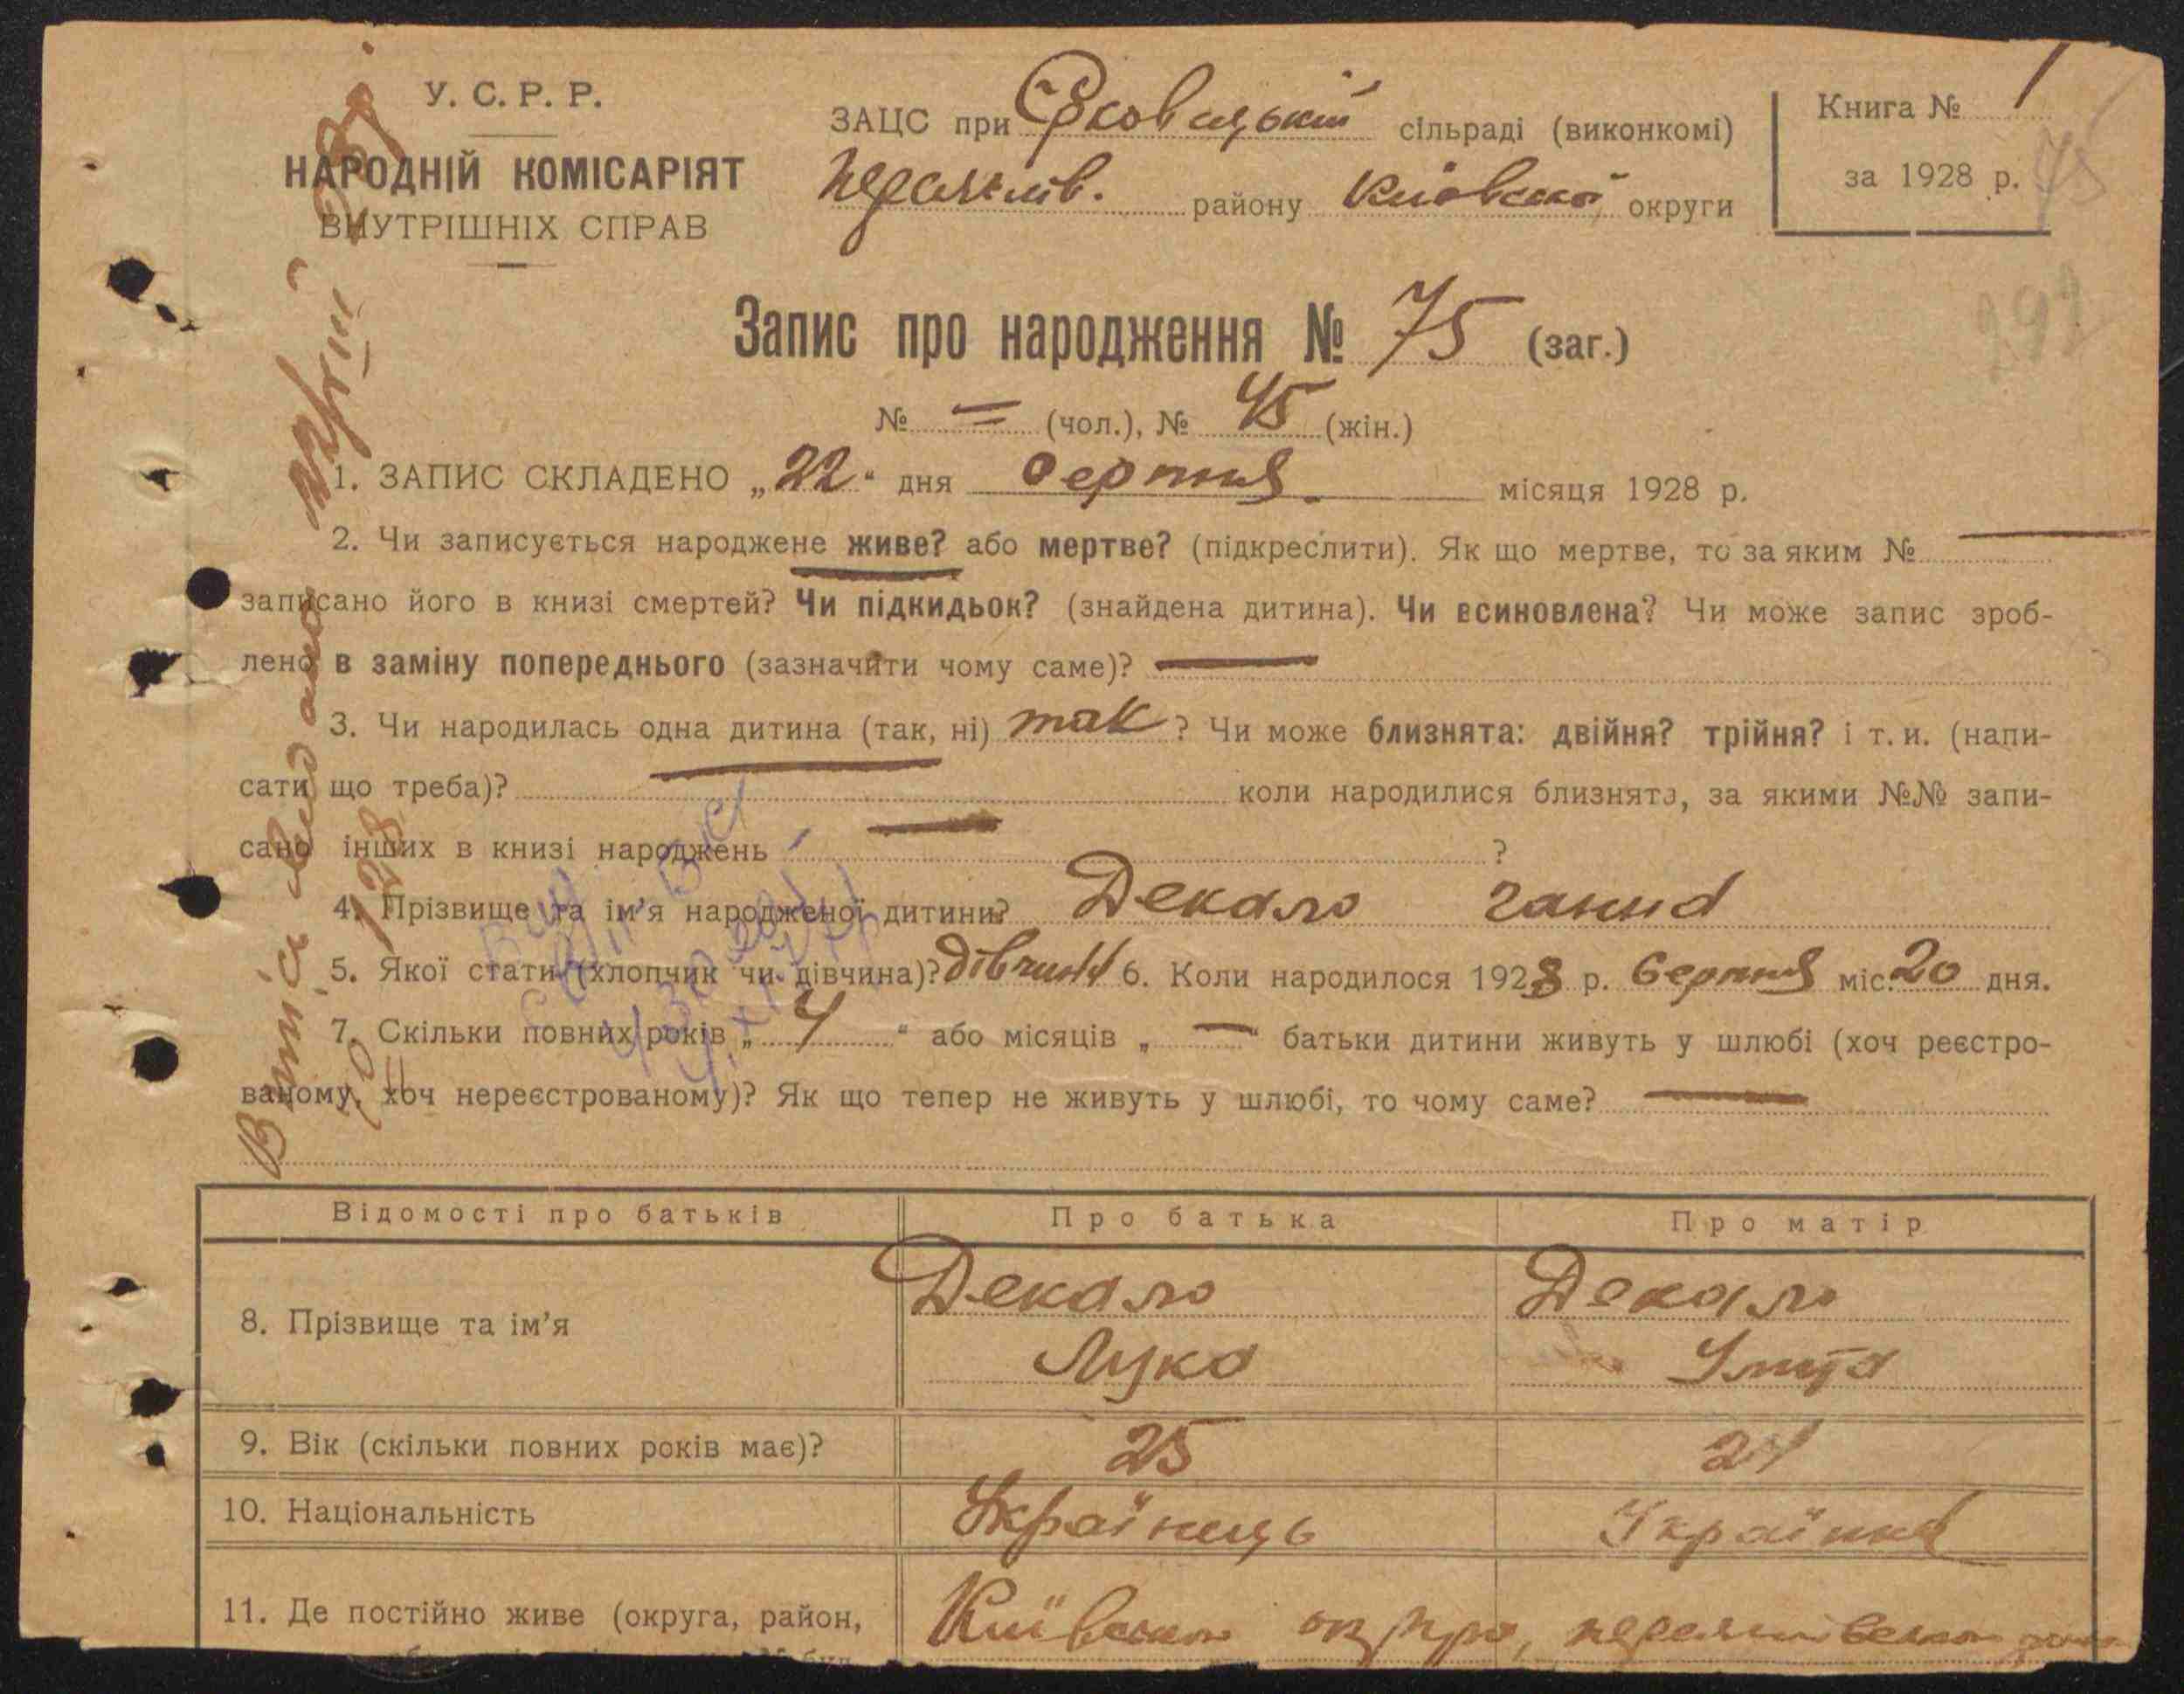 У. С. Р. Р.
НАРОДНІЙ КОМІСАРІЯТ
ВНУТРІШНІХ СПРАВ
ЗАЦС при Єрковецькій сільраді (виконкомі)
Переяслів. району Київської округи
Книга № 1
за 1928 р.
75
Запис про народження № 75 (заг.)
№ = (чол.), № 45 (жін.)
1. ЗАПИС СКЛАДЕНО „22" дня серпня місяця 1928 р.
2. Чи записується народжене живе? або мертве? (підкреслити). Як що мертве, то за яким № —
записано його в книзі смертей? Чи підкидьок? (знайдена дитина). Чи всиновлена? Чи може запис зроб-
лено в заміну попереднього (зазначити чому саме)? —
3. Чи народилась одна дитина (так, ні) так? Чи може близнята: двійня? трійня? і т. и. (напи-
сати що треба)? — коли народилися близнята, за якими №№ запи-
сано інших в книзі народжень — ?
4. Прізвище та ім'я народженої дитини? Декало Ганна
5. Якої стати (хлопчик чи дівчина)? дівчина 6. Коли народилося 1928 р. Серпня міс. 20 дня.
7. Скільки повних років „4" або місяців „—" батьки дитини живуть у шлюбі (хоч реєстро-
ваному, хоч нереєстрованому)? Як що тепер не живуть у шлюбі, то чому саме? —
Відомості про батьків Про батька Про матір
8. Прізвище та ім'я Декало Декало
Лука
9. Вік (скільки повних років має)? 25 24
10. Національність Українець Українка
11. Де постійно живе (округа, район, Київської округи, Переяславського
Витіс видано